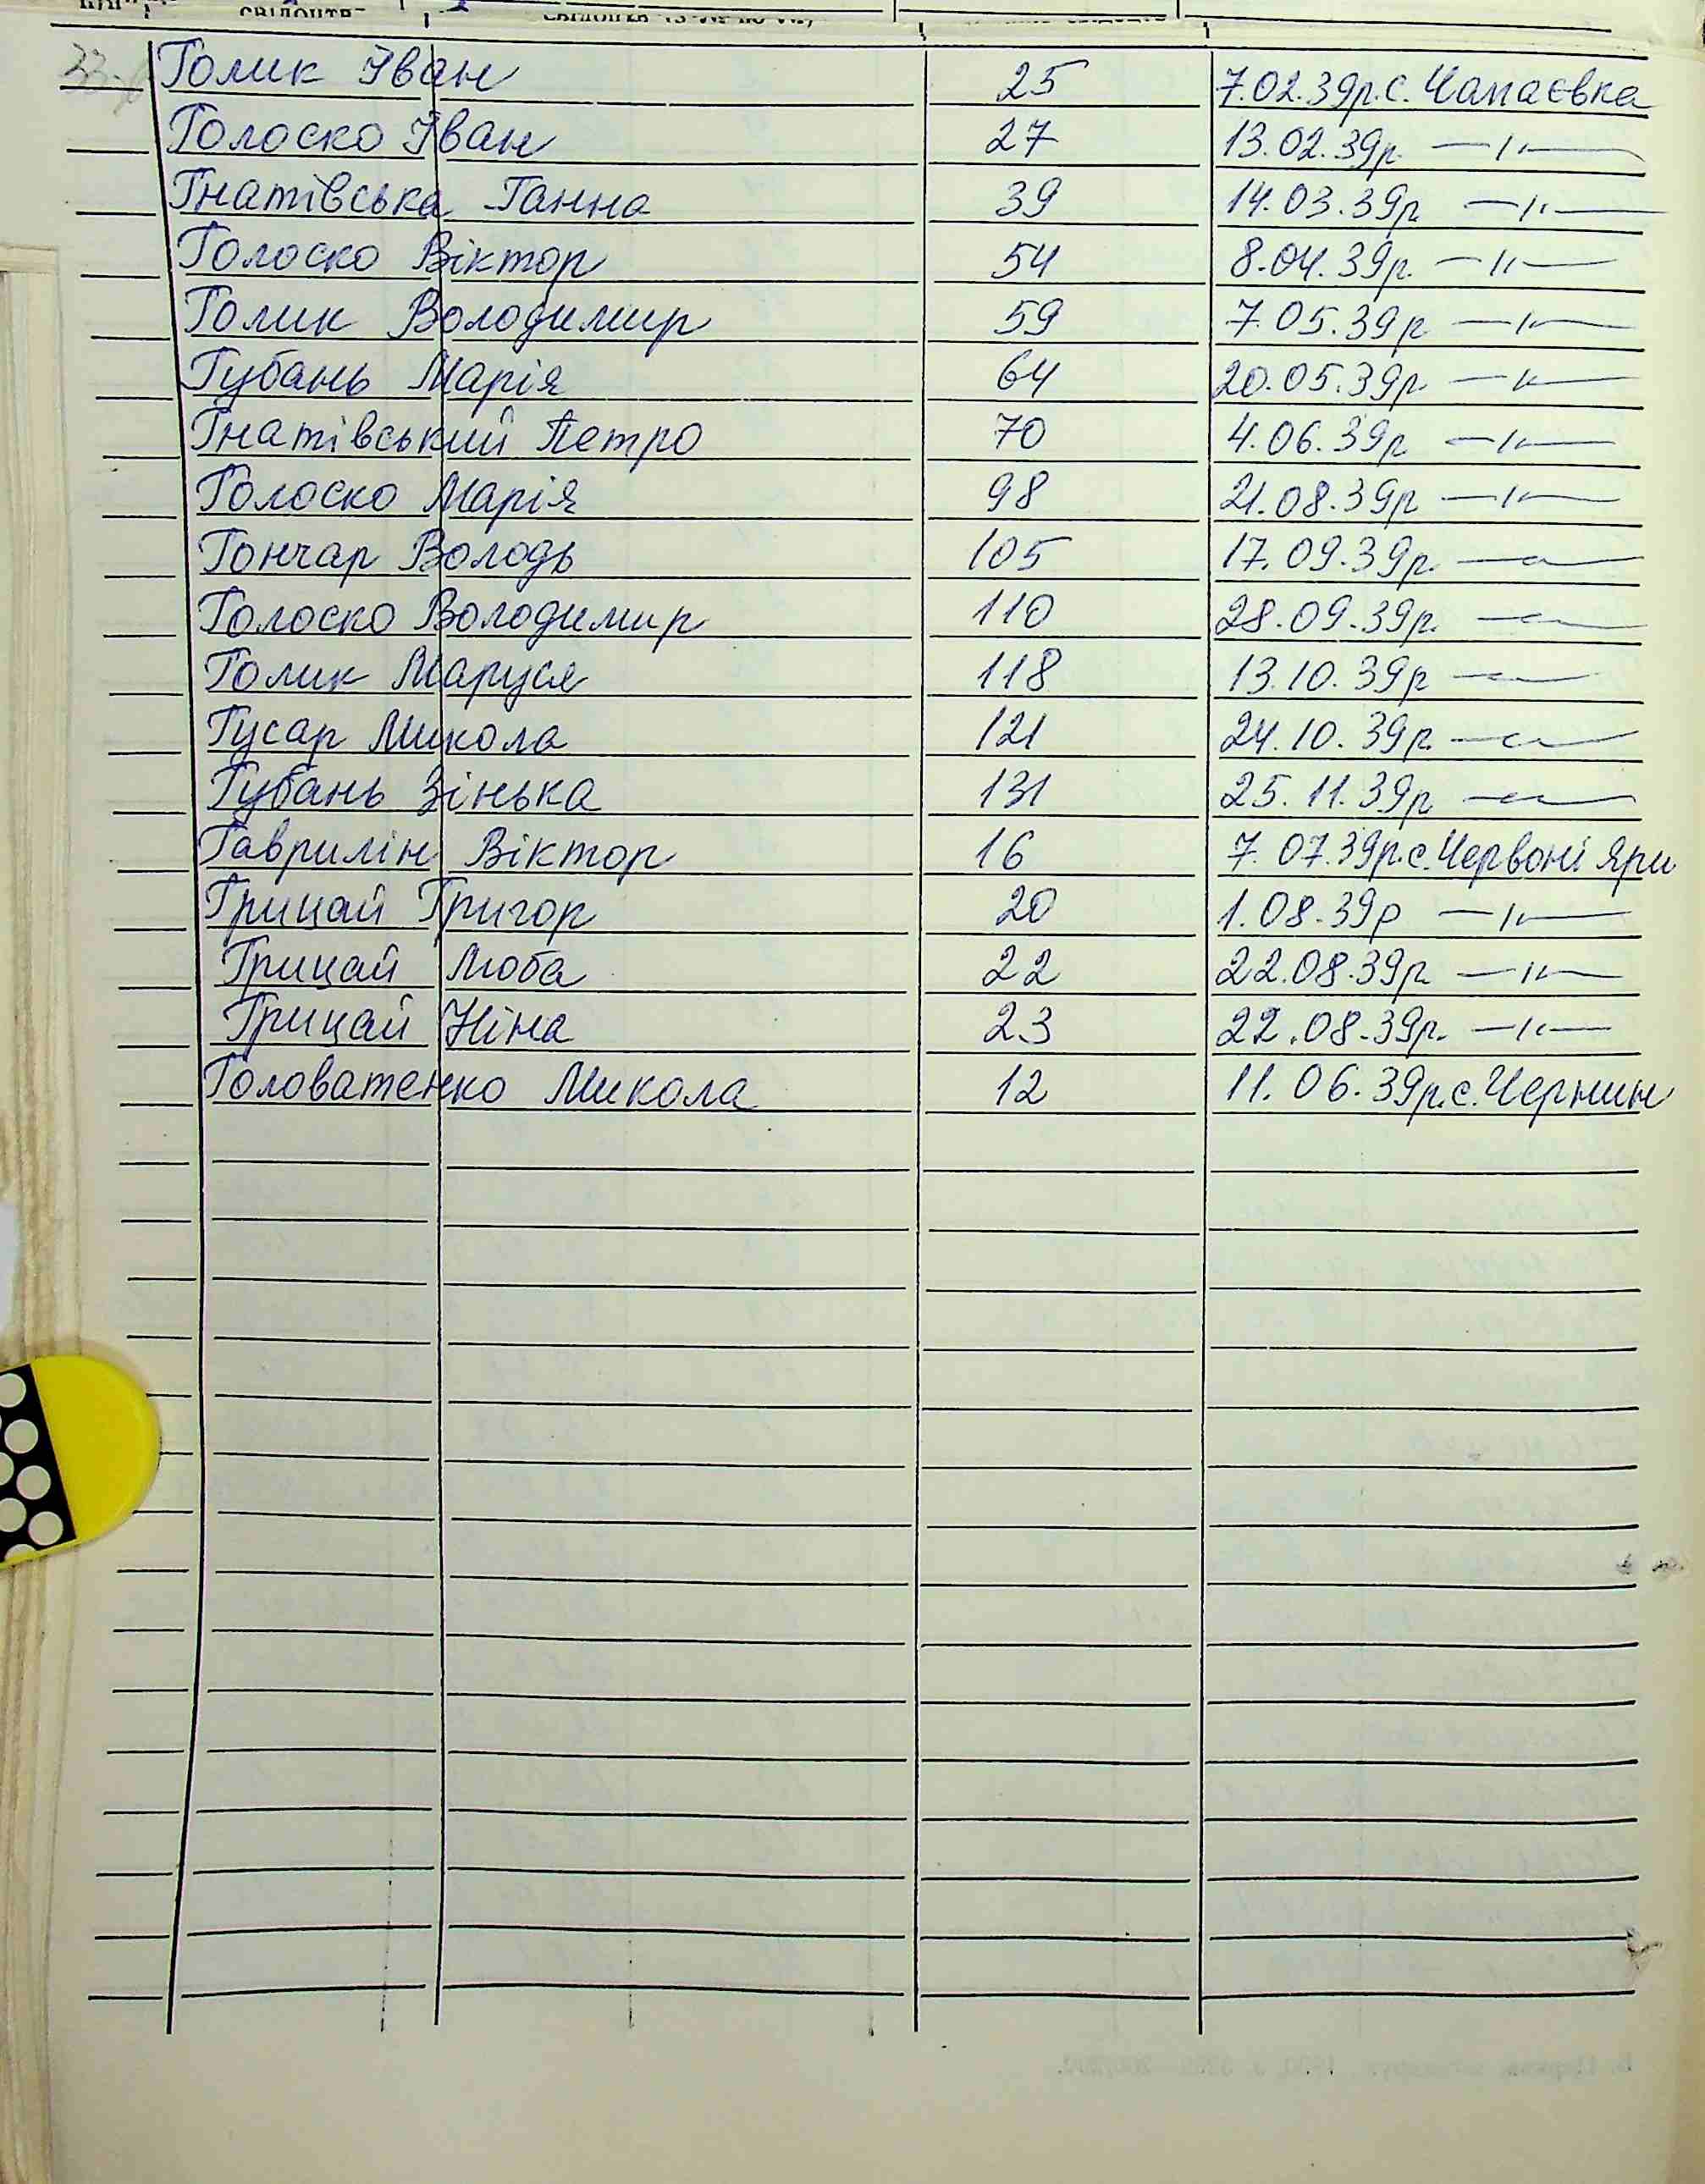 Голик Іван 25 7.02.39р. с. Чапаєвка
Голоско Іван 27 13.02.39р. —〃—
Гнатівська Ганна 39 14.03.39р. —〃—
Голоско Віктор 54 8.04.39р. —〃—
Голик Володимир 59 7.05.39р. —〃—
Губань Марія 64 20.05.39р. —〃—
Гнатівський Петро 70 4.06.39р. —〃—
Голоско Марія 98 21.08.39р. —〃—
Гончар Володь 105 17.09.39р. —〃—
Голоско Володимир 110 28.09.39р. —〃—
Голик Маруся 118 13.10.39р. —〃—
Гусар Микола 121 24.10.39р. —〃—
Губань Зінька 131 25.11.39р. —〃—
Гаврилін Віктор 16 7.07.39р. с. Червоні Яри
Грицай Григор 20 1.08.39р —〃—
Грицай Люба 22 22.08.39р. —〃—
Грицай Ніна 23 22.08.39р. —〃—
Головатенко Микола 12 11.06.39р. с. Чернин